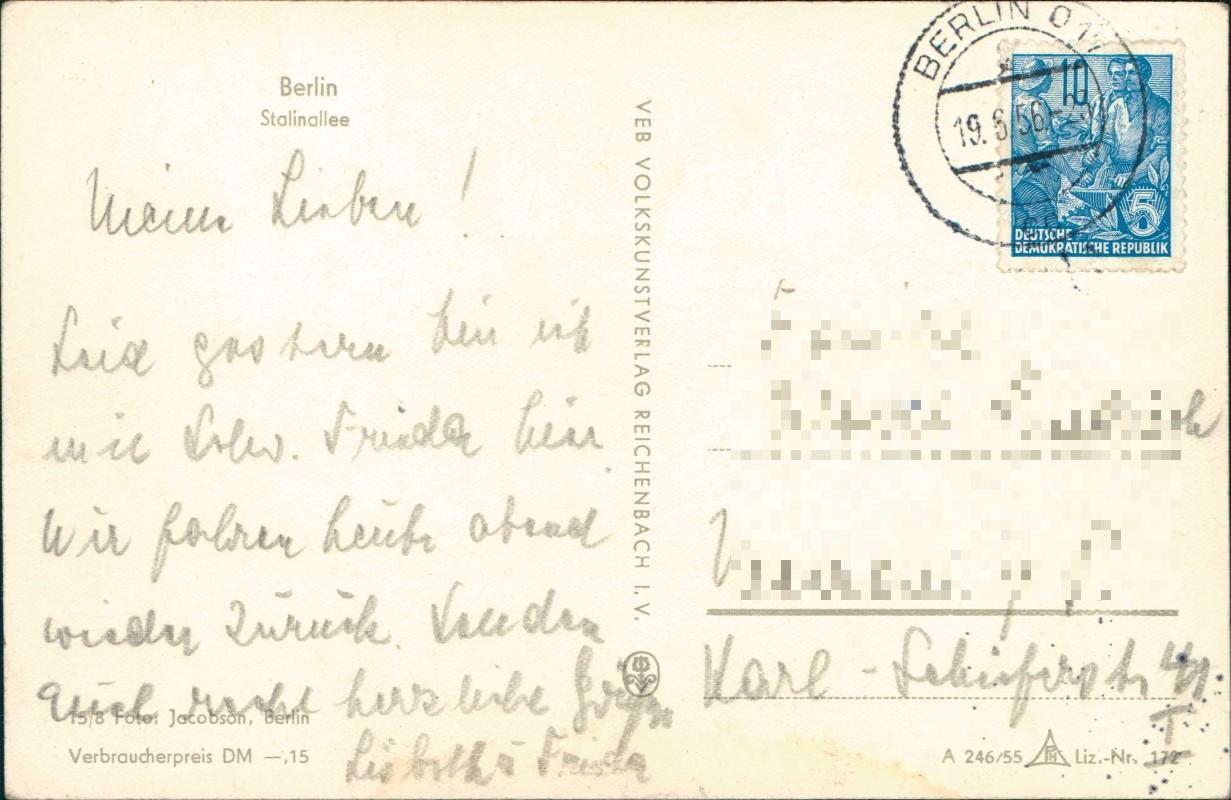 Berlin
Stalinallee
Meine Lieben!
Seid gestern bin ich
mit Schw. Frieda hier.
Wir fahren heute abend
wieder zurück. Senden
Euch recht herzliche Grüße
Lisbeth u Frieda
15/8 Foto: Jacobson, Berlin
Verbraucherpreis DM —,15
VEB VOLKSKUNSTVERLAG REICHENBACH I. V.
BERLIN O 17
19. 6. 56
10
5
DEUTSCHE
DEMOKRATISCHE REPUBLIK
Karl-
I
A 246/55 Liz.-Nr. 172